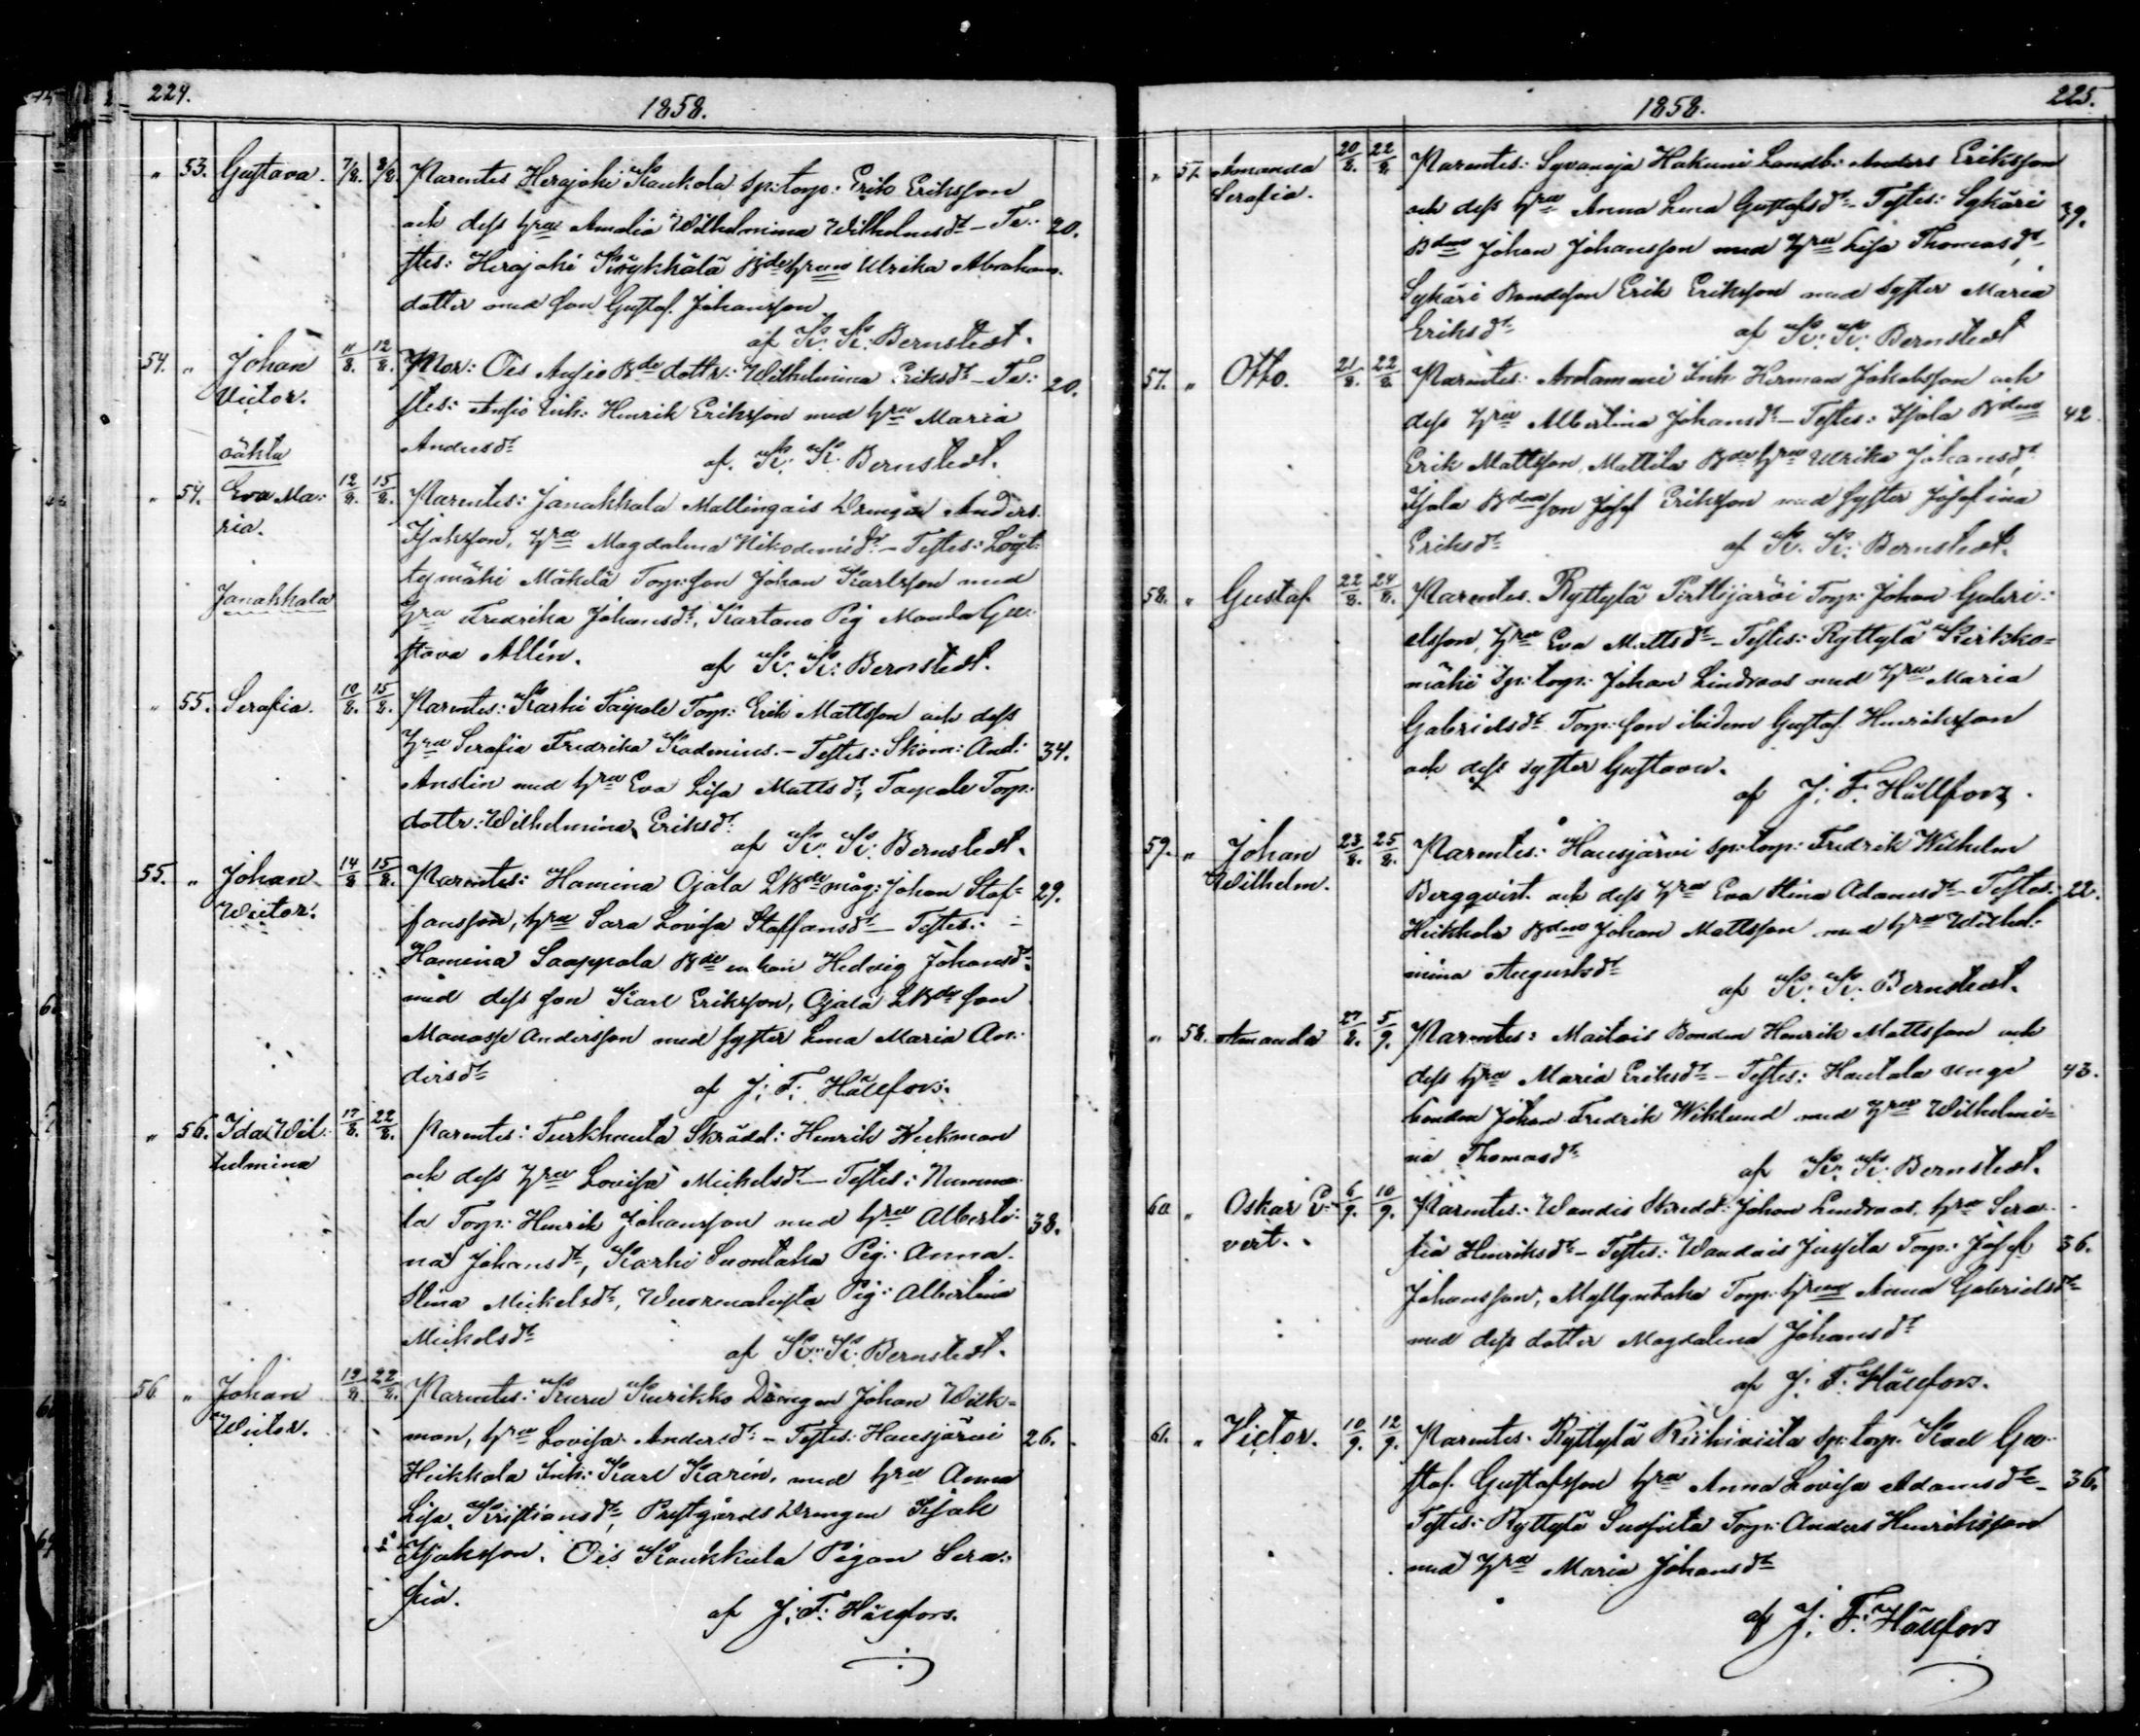 224.
1858.
" 53. Gustava. 7/8. 8/8. Parentes Herajoki Kaukola sp:torp: Erik Eriksson
och dess hru Amalia Wilhelmina Wilhelmsdr – Te: 20.
stes: Herajoki Kärykkälä Bdehrun Ulrika Abrahams-
dotter med son Gustaf Johansson
af K: K: Bernstedt.
54. " Johan 11/8. 12/8. Mor: Ois Ansio Bde dottr: Wilhelmina Eriksdr – Te: 20.
Victor.
stes: Ansio Inh: Henrik Eriksson med hru Maria
oäkta
Andersdr
af K: K: Bernstedt.
" 54. Eva Ma: 12/8. 15/8. Parentes: Janakkala Mallingais Drengen Anders
ria.
Isaksson, hru Magdalena Nikodemidr – Testes: Löyt-
tymäki Mäkelä Torp:son Johan Karlsson med
Janakkala
hru Fredrika Johansdr, Kartano Pig Manda Gu:
stava Allén.
af K: K: Bernstedt.
" 55. Serafia. 10/8. 15/8. Parentes: Karhi Taipale Torp: Erik Mattsson och dess
hru Serafia Fredrika Kadenius. – Testes: Skom: And: 34.
Anslin med hru Eva Lisa Mattsdr, Taipale Torp:
dottr: Wilhelmina Eriksdr
af K: K: Bernstedt.
55. " Johan 14/8 15/8. Parentes: Hamina Ojala LBde måg: Johan Staf- 29.
Wictor.
fansson, hru Sara Lovisa Staffansdr – Testes: –
Hamina Saappala Bde enkan Hedvig Johansdr
med dess son Karl Eriksson, Ojala LBde son
Manasse Andersson med syster Lena Maria An:
dersdr
af J: F: Hällfors.
" 56. Ida Wil- 17/8. 22/8. Parentes: Turkhauta Skrädd: Henrik Wickman
helmina
och dess hru Lovisa Michelsdr – Testes: Numma-
la Torp: Henrik Johansson med hru Alberti: 38.
na Johansdr, Karhi Suontaka Pig: Anna
Stina Mickelsdr, Wuorenalusta Pig: Albertina
Mickelsdr
af K: K: Bernstedt.
56 " Johan 19/8. 22/8. Parentes: Kuru Kurikko Drengen Johan Wick-
Wictor.
man, hru Lovisa Andersdr – Testes: Hausjärvi 26.
Heikkola Inh: Karl Karén, med hru Anna
Lisa Kristiansdr, Prestgårds Drengen Isak
Isaksson, Ois Kaukkala Pigan Sera:
fia.
af J: F: Hällfors.
1858.
225.
" 57. Amanda 20/8. 22/8. Parentes: Syvänoja Hakuni Landb: Anders Eriksson
Serafia.
och dess hru Anna Lena Gustafsdr – Testes: Sykäri 39.
Bdne Johan Johansson med hru Lisa Thomasdr,
Sykäri Bondeson Erik Eriksson med syster Maria
Eriksdr
af K: K: Bernstedt
57. " Otto. 21/8. 22/8. Parentes: Inh Herman Jakobsson och
dess hru Albertina Johansdr – Testes: Isola Bdne 42
Erik Mattsson, Mattila Bdehru Ulrika Johansdr,
Isola Bdeson Josef Eriksson med syster Josefina
Eriksdr
af K: K: Bernstedt.
58. " Gustaf 22/8. 24/8. Parentes. Ryttylä Pirttijärvi Torp: Johan Gabri:
elsson, hru Eva Mattsdr – Testes: Ryttylä Kirkko=
mäki Sp:torp: Johan Lindroos med hru Maria
Gabrielsdr Torp:son ibidem Gustaf Henriksson
och dess syster Gustava.
af J: F: Hällfors.
59. " Johan 23/8. 25/8. Parentes: Hausjärvi sp:torp: Fredrik Wilhelm
Wilhelm.
Bergqvist och dess hru Eva Stina Adamsdr – Testes: 22.
Heikkola Bdne Johan Mattsson med hru Wilhel:
mina Augustsdr
af K: K: Bernstedt.
" 58. Amanda 27/8. 5/9. Parentes: Maitois Bonden Henrik Mattsson och
dess hru Maria Eriksdr – Testes: Hautala unge 43.
bonden Johan Fredrik Wiklund med hru Wilhelmi=
na Thomasdr
af K: K: Bernstedt.
60 " Oskar E- 6/9. 10/9. Parentes: Wandis Skrädd: Johan Lindroos, hru Sera-
vert.
fia Henriksdr – Testes: Wandais Jussila Torp: Josef 36.
Johansson, Myllyntaka Torp:hrun Anna Gabrielsdr
med dess dotter Magdalena Johansdr
af J: F: Hällfors.
61. " Victor. 10/9. 12/9. Parentes: Ryttylä sp:torp. Karl Gu-
staf Gustafsson hru Anna Lovisa Adamsdr – 36.
Testes: Ryttylä Torp: Anders Henriksson
med hru Maria Johansdr
af J: F: Hällfors